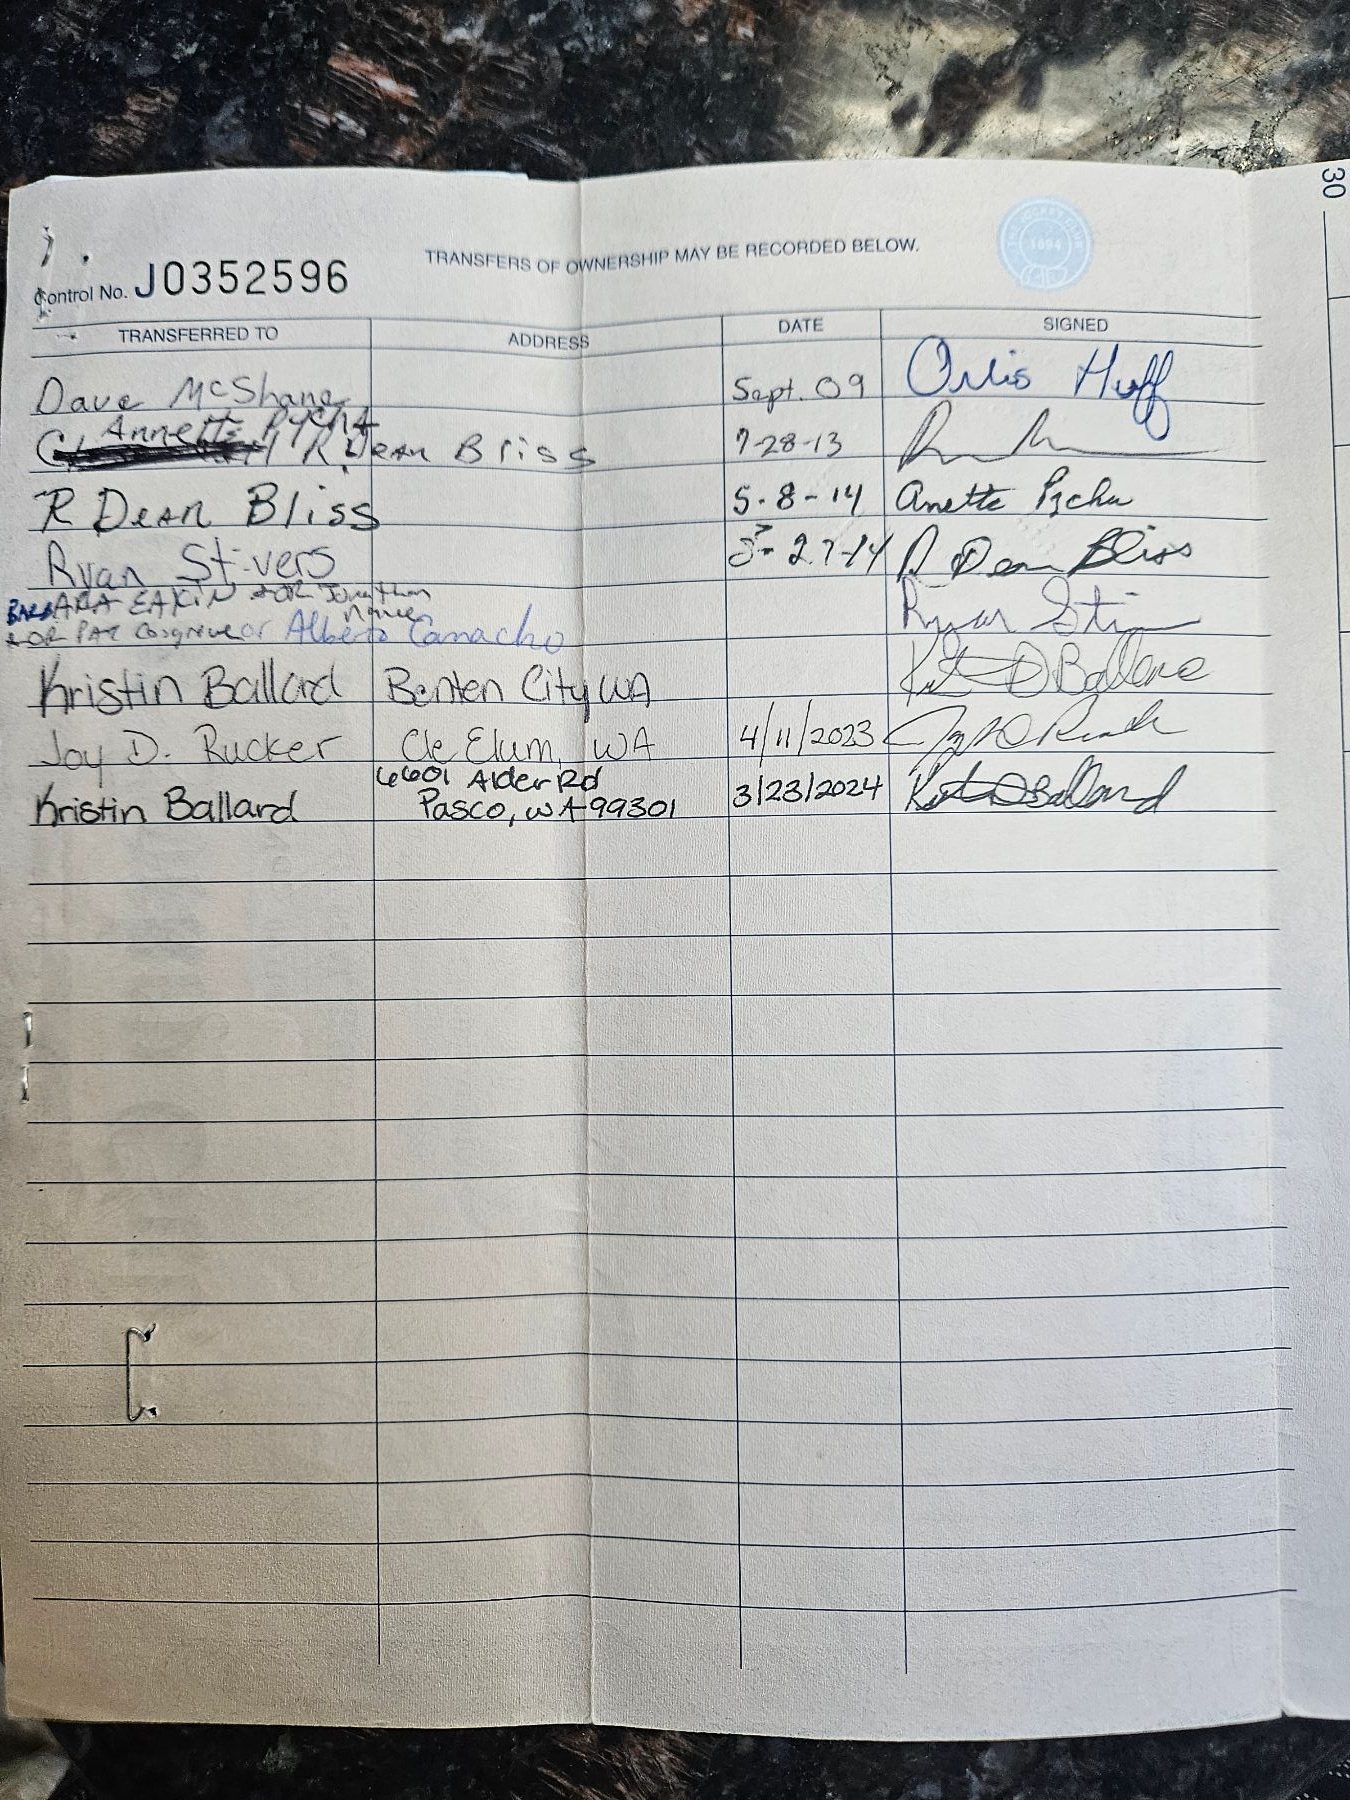 30
TRANSFERS OF OWNERSHIP MAY BE RECORDED BELOW.
THE JOCKEY CLUB 1894
Control No. J0352596
TRANSFERRED TO ADDRESS DATE SIGNED
Dave McShane Sept. 09 Orlis Huff
Annette Pycha
R Dean Bliss 7-28-13
R Dean Bliss 5-8-14 Anette Pycha
Ryan Stivers 27-14 R Dean Bliss
BARBARA EAKIN FOR Jonathan Ryan
FOR PAT Cosgrove or Alberto Camacho
Kristin Ballard Benten City WA Ballard
Joy D. Rucker Cle Elum, WA 4/11/2023 Joy D
6601 Alder Rd
Kristin Ballard Pasco, WA 99301 3/23/2024 Ballard